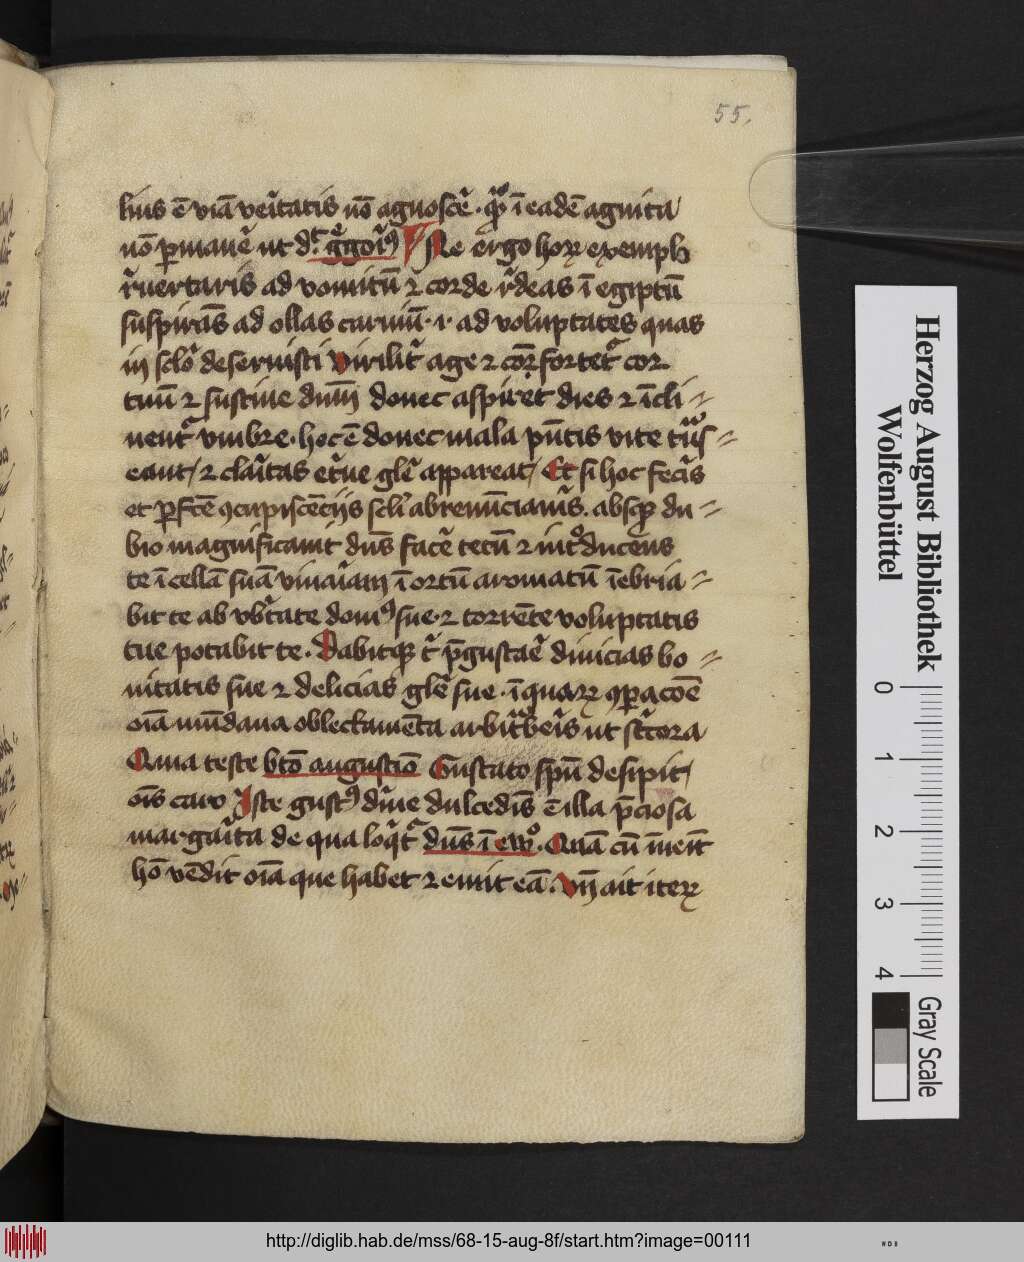 55.
lius ē viā veritatis nō agnoscē᷑. ꝙ̄ ī eadē agnita
nō ꝑmanē᷑ ut d̄t g̊goriꝰ Ne ergo horꝝ exemplo
r᷑vertaris ad vomitū ⁊ corde r᷑deas ī egiptū
suspirās ad ollas carniū .i. ad voluptates quas
in sclō deservisti Virilit᷑ age ⁊ cōfortet᷑ cor
tuū ⁊ sustine dūm donec aspiret dies ⁊ īcli =
nent᷑ vmbre. hoc ē donec mala pn̄tis vite tn̄s =
eant / ⁊ claritas et᷑ne glē appareat / Et si hoc fec᷑is
et ꝑfcē ꝯcupiscēciis scli abrenūciav᷑is. absqꝫ du =
bio magnificavit dn̄s facē tecū ⁊ int᷑ducens
te ī cellā suā vinariam ī ortū aromatū īebria =
bit te ab vb᷑tate domꝰ sue ⁊ torrēte voluptatis
tue potabit te. Dabitqꝫ t᷑ p̄gustaē᷑ divicias bo =
nitatis sue ⁊ delicias glē sue. ī quarꝝ ꝯꝑacōē
oīa mūdana oblectamēta arbit᷑beris ut st᷑cora
Quia teste btō augustīo Gustato spū desipit /
oīs caro Iste gustꝰ divīe dulcedīs ē illa p̄ciosa
margarita de qua loqt᷑ dn̄s ī ew̄o. Quā cū īveīt
hō vēdit oīa que habet ⁊ emit eā. Vn̄ ait iterꝝ
Herzog August Bibliothek
Wolfenbüttel
0 1 2 3 4
Gray Scale
http://diglib.hab.de/mss/68-15-aug-8f/start.htm?image=00111
WDB